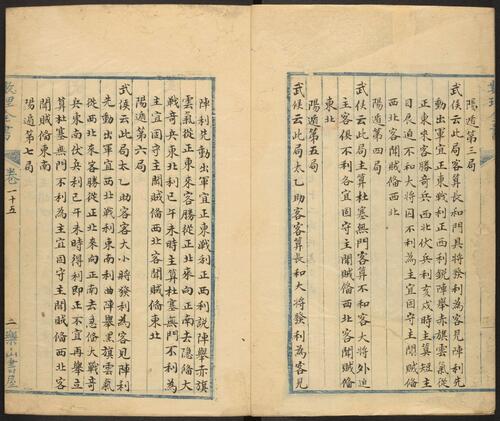 陽遁第三局
武侯云此局客算長和門具將發利為客見陣利先
動出軍宜正東戰利正西利銳陣舉赤旗雲氣從
正東來客勝奇兵西北伏兵利亥戌時主算短主
目俱迫不和大將囚不利為主宜固守主闇賊偹
西北客闇賊偹西北
陽遁第四局
武侯云此局主算杜塞無門客算不和客大將外迫
主客俱不利各宜固守主闇賊偹西北客闇賊偹
東北
陽遁第五局
武侯云此局太乙助客客算長和大將發利為客見
陣利先動出軍宜正東戰利正西利銳陣舉赤旗
雲氣從正東來客勝從正北來向正南去隱偹大
戰奇兵東北利已午未時主算杜塞無門不利為
主宜固守主闇賊偹西北客闇賊偹東北
陽遁第六局
武侯云此局太乙助客客大小將發利為客見陣利
先動出軍宜西北戰利東南利曲陣舉黑旗雲氣
從西北來客勝從正北來向正南去急偹大戰奇
兵東南伏兵利已午未時時得利即止不宜再舉主
算杜塞無門不利為主宜固守主闇賊偹西北客
闇賊偹東南
陽遁第七局
卷一十五
二樂山書屋